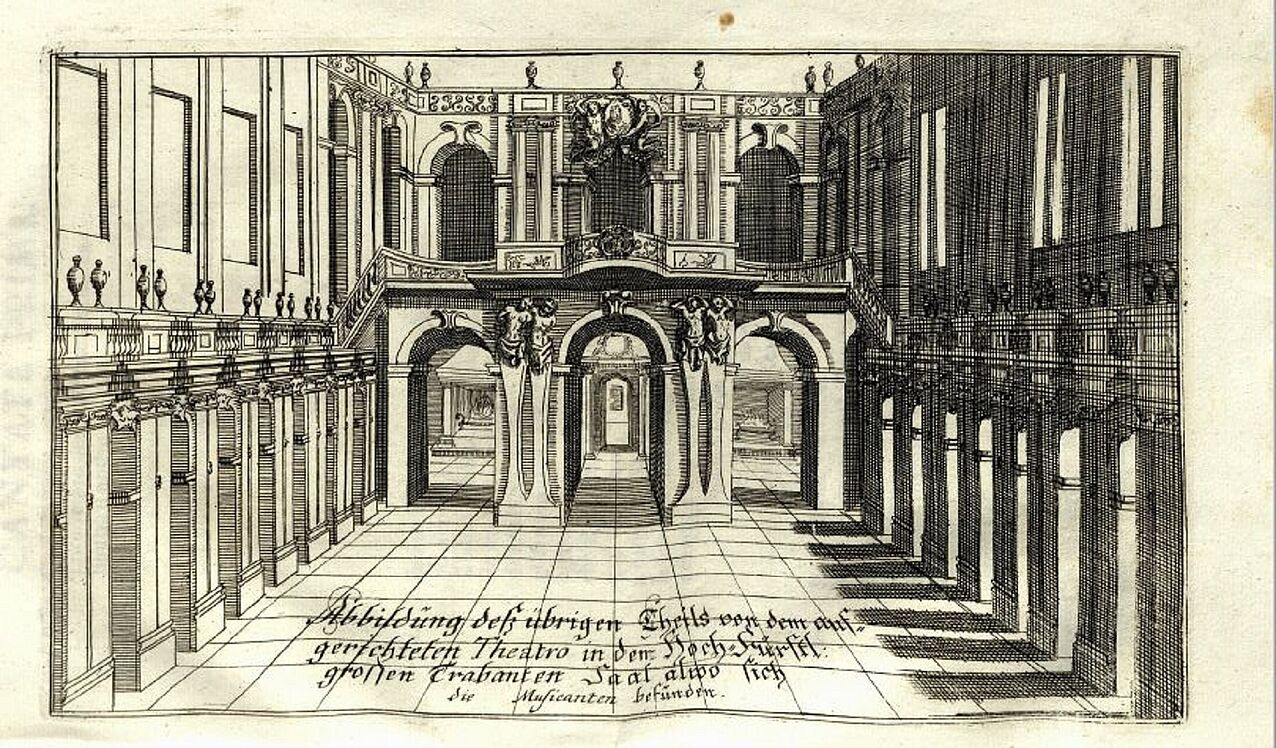 Abbildung deß übrigen Theils von dem auf-
gerichteten Theatro in dem Hoch-Fürstl:
großen Trabanten Saal alwo sich
die Musicanten befünden.